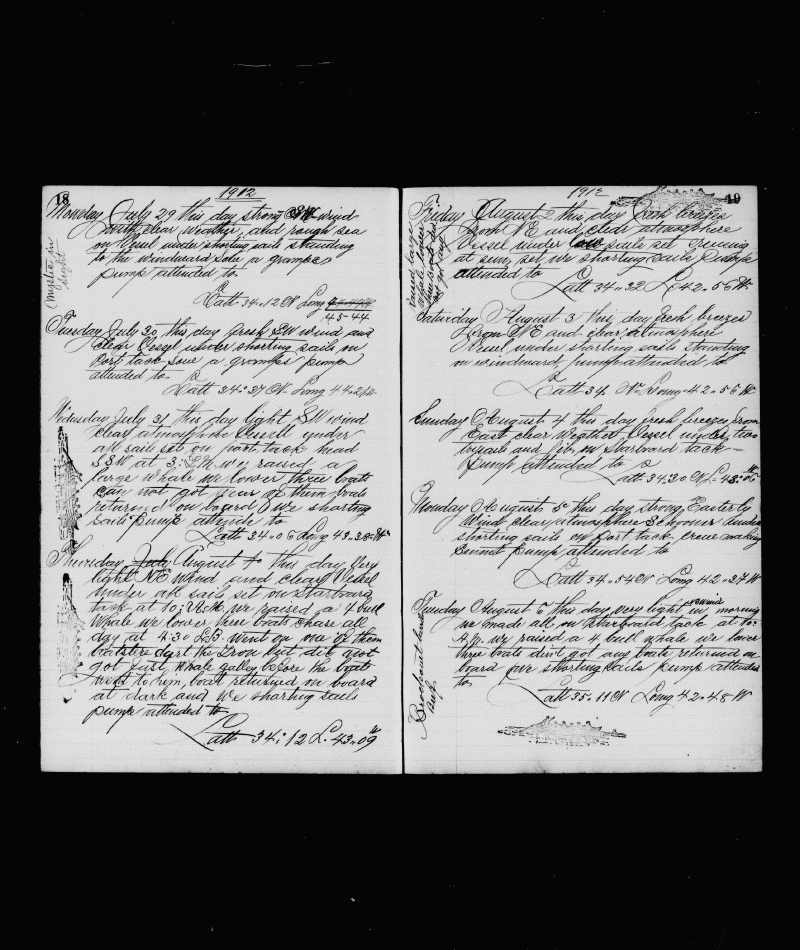 18
1912
Monday July 29 this day strong SW wind
South clear weather, and rough sea
on Vessel under shorting sails standing
to the windward saw a grampes
pump attended to
Mystic in
sight
Latt 34=12 N Long
43-44
Tuesday July 30 this day fresh SW wind and
clear Vessel under shorting sails on
Port tack saw a grampes pump
attended to
Latt 34=37 N. Long 44=2
Wedusday July 31 this day light SW wind
clear atmosphere Vessell under
all sail set on port tack head
SSW at 3: P.M. we raised a
large whale we lower three boats
can not got near of them boats
returned on board we shorting
sails Pump attende to
Latt 34=06 Long 43=38
Thursday July August 1 this day Very
light NE wind and clear Vessel
under all sail set on starboard
tack at 10: A.M. we raised a 4 bull
Whale we lower three boats chase all
day at 4:30 LB went on one of them
boatstere dart the Iron but dit not
got fast, whale galley before the boats
went to him, boat returned on board
at dark and we shorting sails
pump attended to
Latt 34:12 L. 43=09 W
1912
19
Friday August 2 this day fresh brezes
from NE and clear atmosphere
Vessel under low sails set
at sun set we shorting sails pump
attended to
Latt 34=32 L 42=56 W
Saturday August 3 this day fresh breezes
from NE and clear atmosphere
Vessel under starting sails standing
on windward, pump attended to
Latt 34 N Long=42=56 W
Sunday August 4 this day fresh breezes from
East clear Weather, Vessel under, two
trisails and jib on Starboard tack
Pump attended to
Latt 34:30 N L= 43=06 W
Monday August 5 this day strong Easterly
Wind clear, atmosphere Schooner under
shorting sails on port tack crew making
Sennet Pump attended to
Latt 34=54 N Long 42=37 W
Tuesday August 6 this day very light wind in morning
we made all on Starboard tack at 10=
A.M. we raised a 4 bull whale we lower
three boats din't got any boats returned on
board we shorting sails pump attended
to
Latt 35=11 N Long 42=48 W